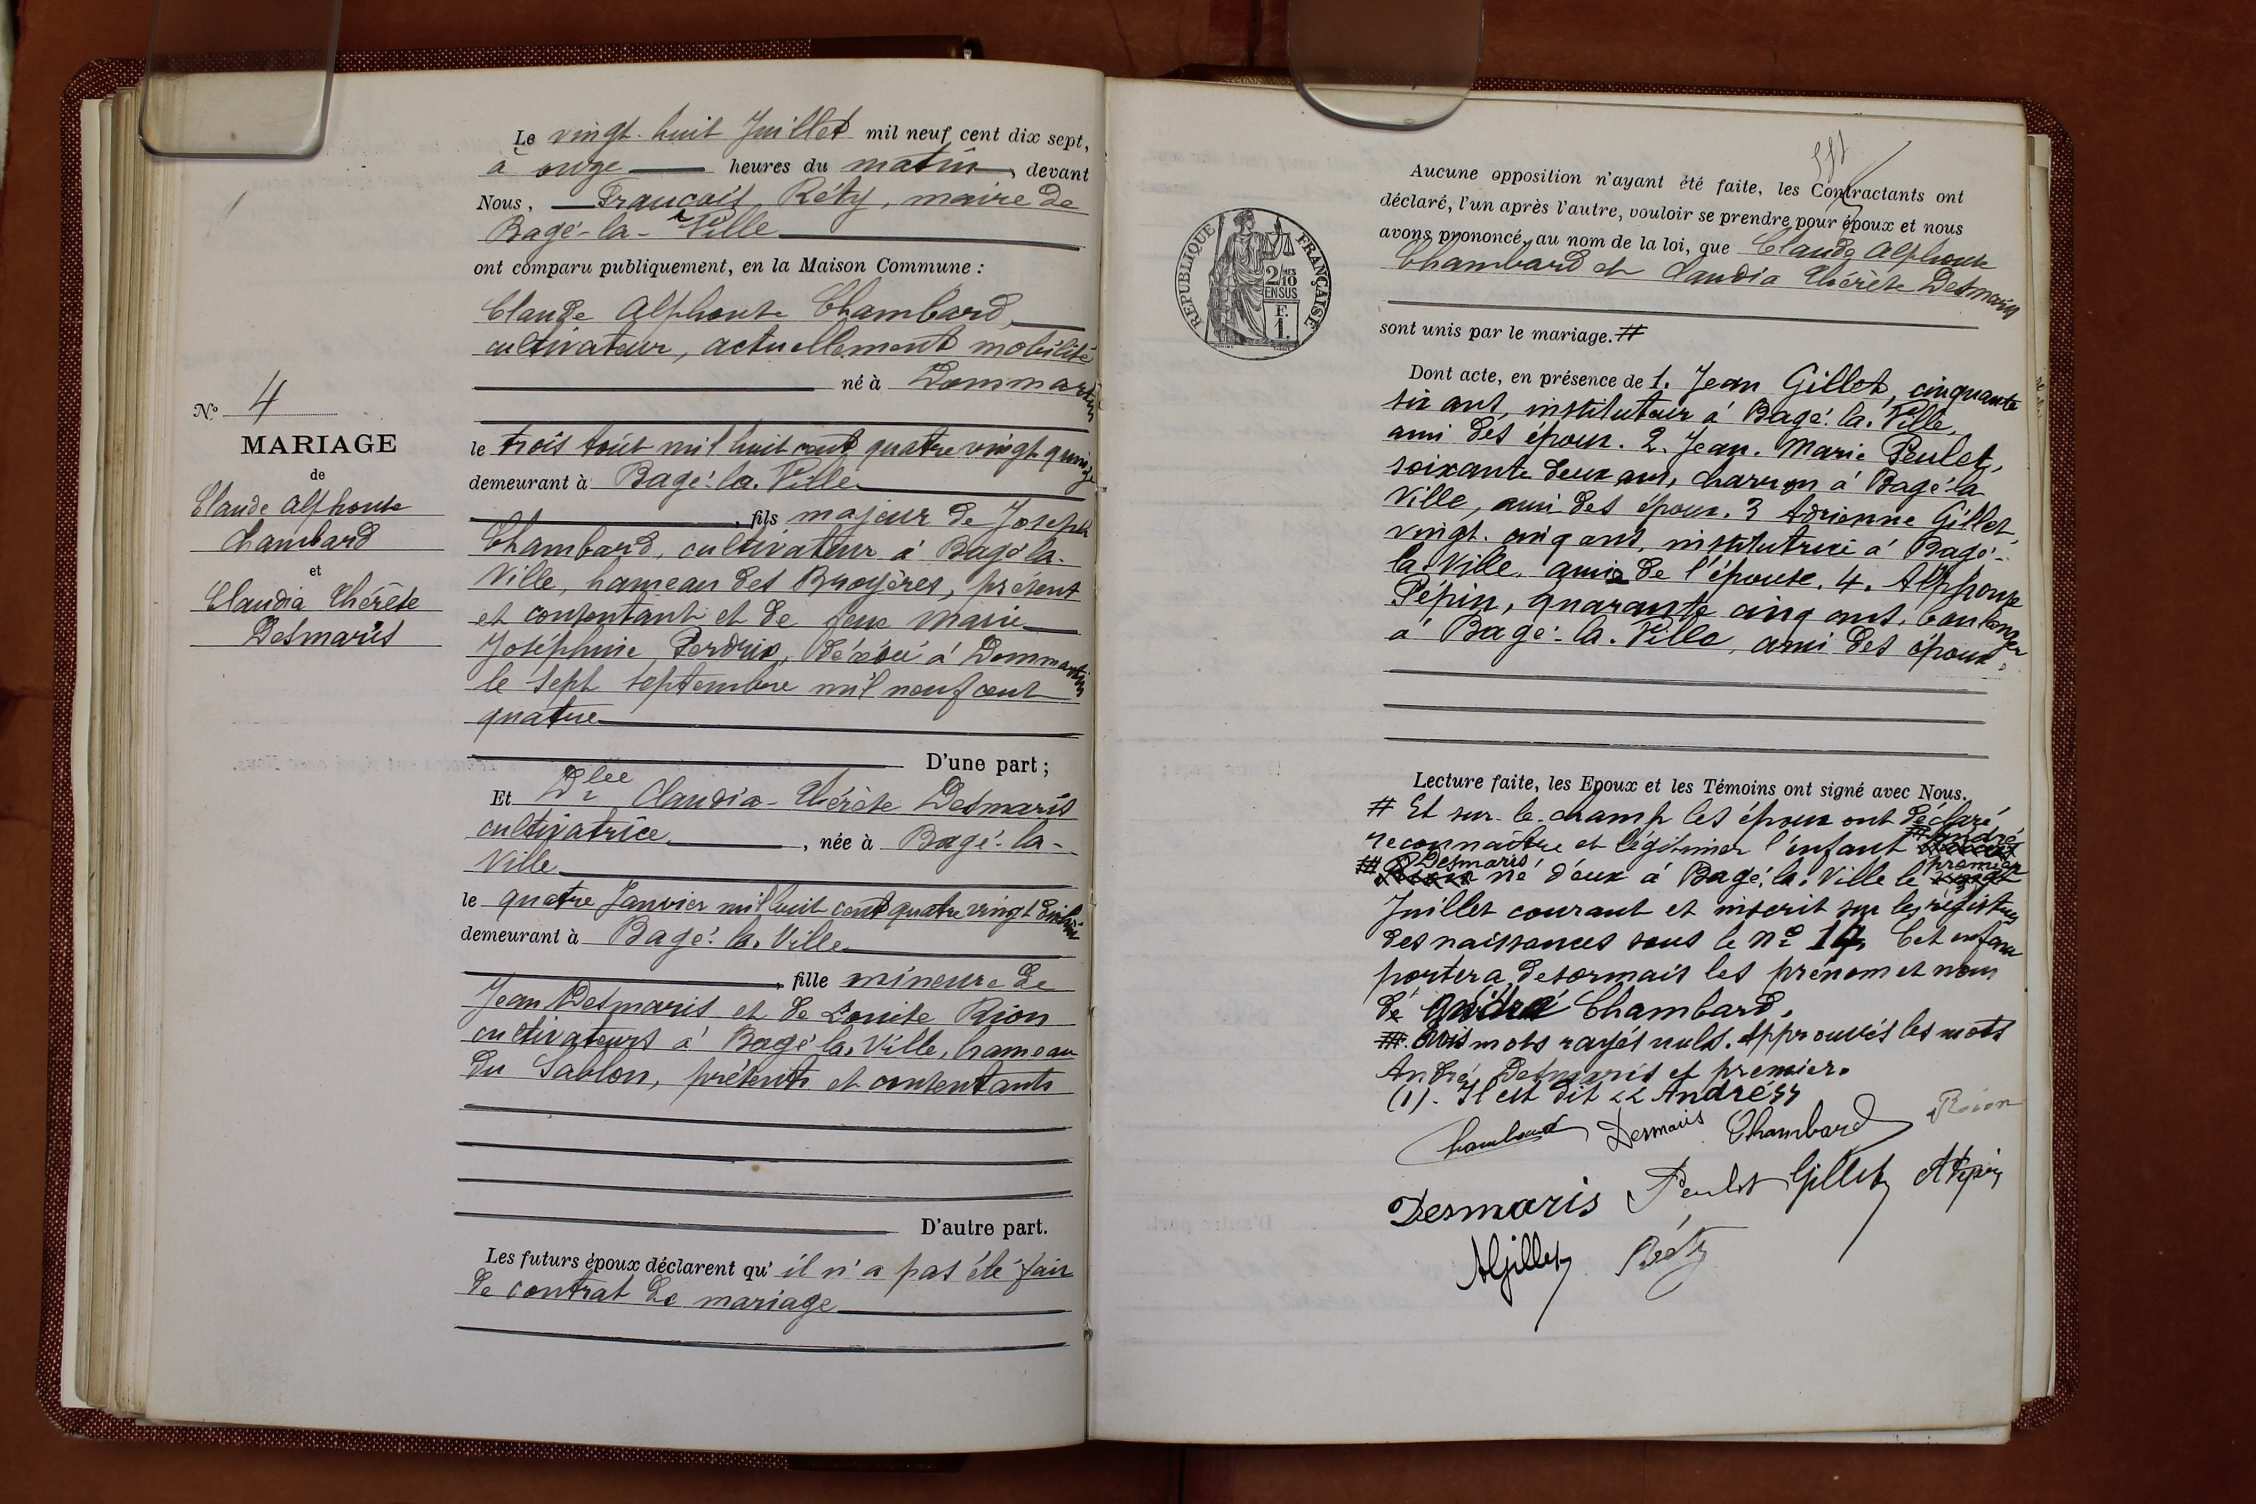 Le vingt-huit Juillet mil neuf cent dix sept,
à onze heures du matin, devant
Nous, François Réty, maire de
Bagé-la-Ville
ont comparu publiquement, en la Maison Commune :
Claude Alphonse Chambard,
cultivateur, actuellement mobilisé
né à Dommartin
le trois août mil huit cent quatre vingt quinze
demeurant à Bagé-la-Ville
, fils majeur de Joseph
Chambard, cultivateur à Bagé-la-
Ville, hameau des Bruyères, présent
et consentant et de feue Marie
Joséphine Perdrix, décédée à Dommartin
le sept septembre mil neuf cent
quatre
D'une part ;
Et Dlle Claudia-Thérèse Desmaris
cultivatrice, née à Bagé-la-
Ville
le quatre Janvier mil huit cent quatre vingt dix huit
demeurant à Bagé-la-Ville
, fille mineure de
Jean Desmaris et de Louise Rion
cultivateurs à Bagé-la-Ville, hameau
du Sablon, présents et consentants
D'autre part.
Les futurs époux déclarent qu' il n'a pas été fait
de contrat de mariage
No 4
MARIAGE
de
Claude Alphonse
Chambard
et
Claudia Thérèse
Desmaris
RÉPUBLIQUE FRANÇAISE
2/10
EN SUS
F.
1.
Aucune opposition n'ayant été faite, les Contractants ont
déclaré, l'un après l'autre, vouloir se prendre pour époux et nous
avons prononcé, au nom de la loi, que Claude Alphonse
Chambard et Claudia Thérèse Desmaris
sont unis par le mariage. #
Dont acte, en présence de 1. Jean Gillet, cinquante
six ans, instituteur à Bagé-la-Ville,
ami des époux. 2. Jean-Marie Peulet,
soixante deux ans, charron à Bagé-la
Ville, ami des époux. 3 Adrienne Gillet,
vingt-cinq ans, institutrice à Bagé-
la-Ville, amie de l'épouse. 4. Alphonse
Pépin, quarante cinq ans, boulanger
à Bagé-la-Ville, ami des époux.
Lecture faite, les Epoux et les Témoins ont signé avec Nous.
# Et sur-le-champ les époux ont déclaré
reconnaître et légitimer l'enfant André
Desmaris né d'eux à Bagé-la-Ville le premier
Juillet courant et inscrit sur les registres
des naissances sous le no 14. Cet enfant
portera désormais les prénom et nom
de André Chambard.
mots rayés nuls. Approuvés les mots
André, Desmaris et premier.
(1). Il est dit << André >>
Chambard Desmaris Chambard Rion
Desmaris Peulet Gillet A Pépin
A Gillet Réty